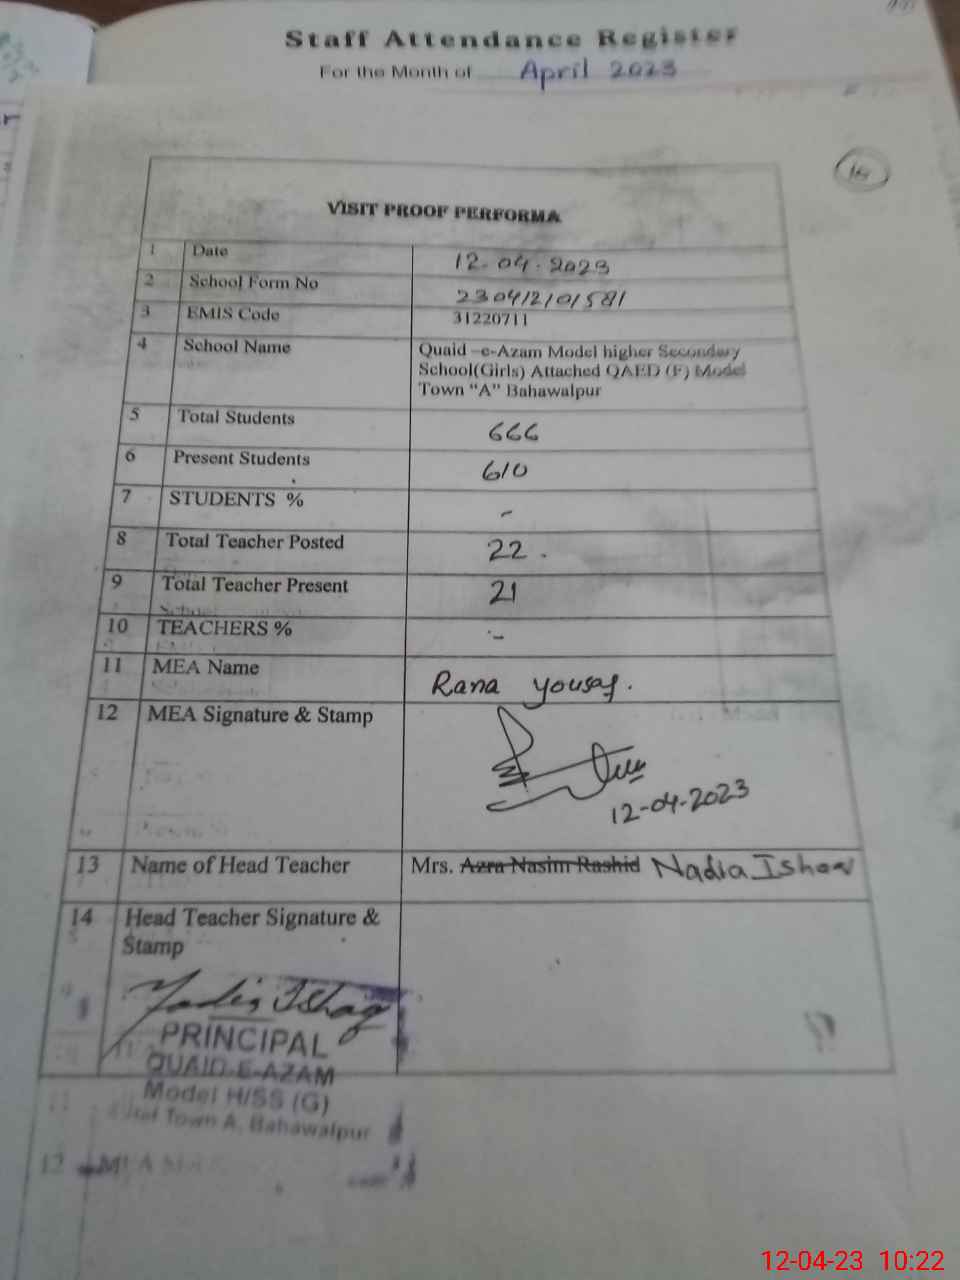 Staff Attendance Register
For the Month of April 2023
VISIT PROOF PERFORMA
1 Date 12-04-2023
2 School Form No 230412101581
3 EMIS Code 31220711
4 School Name Quaid –e-Azam Model higher Secondary
School(Girls) Attached QAED (F) Model
Town "A" Bahawalpur
5 Total Students 666
6 Present Students 610
7 STUDENTS % -
8 Total Teacher Posted 22 .
9 Total Teacher Present 21
10 TEACHERS % -
11 MEA Name Rana yousaf.
12 MEA Signature & Stamp
12-04-2023
13 Name of Head Teacher Mrs. Azra Nasim Rashid Nadia Ishaq
14 Head Teacher Signature &
Stamp
Nadia Ishaq
PRINCIPAL
QUAID-E-AZAM
Model H/SS (G)
Town A, Bahawalpur
12 MEA
12-04-23 10:22